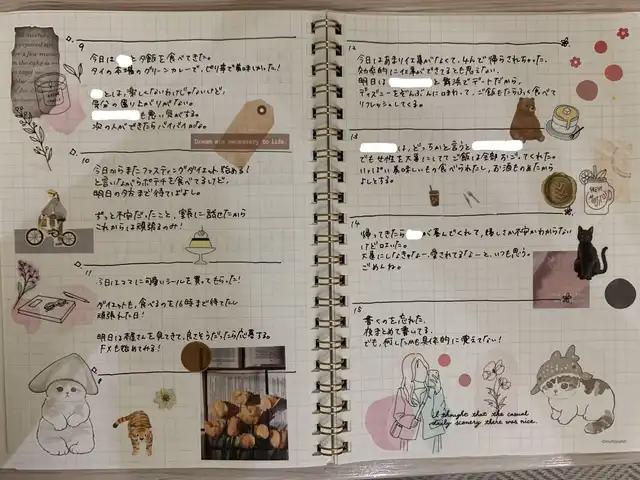 9
今日は と夕飯を食べてきた。
タイの本場のグリーンカレーで、ピリ辛で美味しかった!
とは、楽しくないわけじゃないけど、
異常な盛り上がりがない。
も悪い気がする。
次の人ができたらバイバイかな。
Dream was necessary to life.
10
今日からまたファスティングダイエット始める!
と言いながらポテチを食べてるけど、
明日の夕方まで待てばよし。
ずっと不安だったこと、家族に話せたから
これからは頑張るのみ!
11
今日はママに可愛いシールを買ってもらった!
ダイエットも、食べるのを16時まで待てたし
頑張れた日!
明日は さんを見てきて、良さそうだったら応募する。
FXも始めてみる!
12
今日はあまり仕事がなくて、なんで帰らされちゃった。
効率的に仕事ができてるとも思えない。
明日は と舞浜でデートだから、
ディズニーをぞんぶんに味わって、ご飯もたらふく食べて
リフレッシュしてくる。
13
は、どっちかと言うと
でも女性を大事にしてて ご飯は全部おごってくれた。
いっぱい美味しいもの食べられたし、お酒ものめたから
よしとする。
14
帰ってきたら が喜んでくれて、嬉しいか不安かわからない
けど泣いた。
大事にしなきゃなー、愛されてるなーと、いつも思う。
ごめんね。
15
書くのを忘れた。
夜まとめて書いてる。
でも、何したかも具体的に覚えてない!
I thought that the casual
daily scenery there was nice.